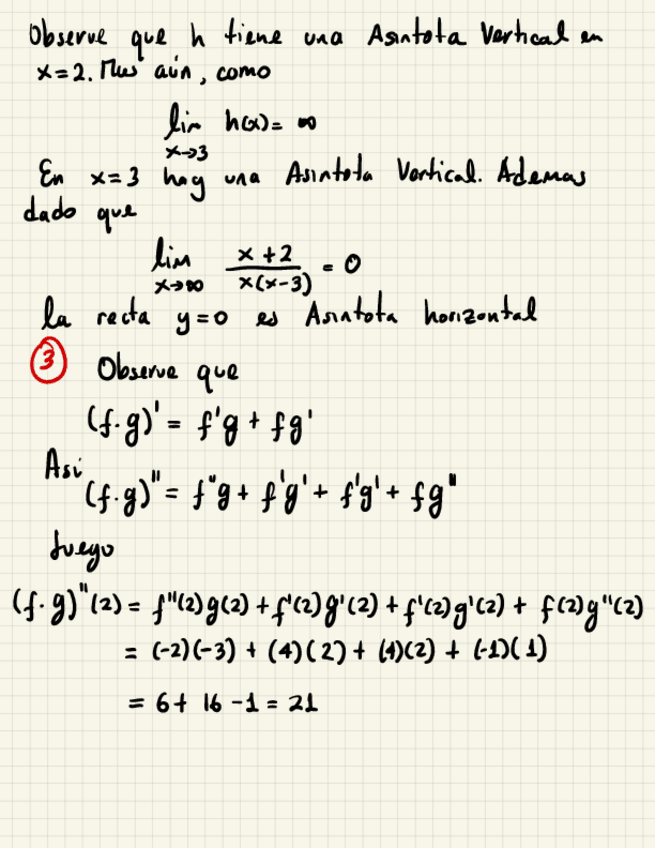 Observe que h tiene una Asintota Vertical en
x=2. Mas aún, como
lim h(x) = ∞
x→3
En x=3 hay una Asintota Vertical. Ademas
dado que
lim x+2 / x(x-3) = 0
x→∞
la recta y=0 es Asintota horizontal
③ Observe que
(f·g)' = f'g + fg'
Asi
(f·g)" = f"g + f'g' + f'g' + fg"
Luego
(f·g)"(2) = f"(2)g(2) + f'(2)g'(2) + f'(2)g'(2) + f(2)g"(2)
= (-2)(-3) + (4)(2) + (4)(2) + (-1)(1)
= 6 + 16 - 1 = 21